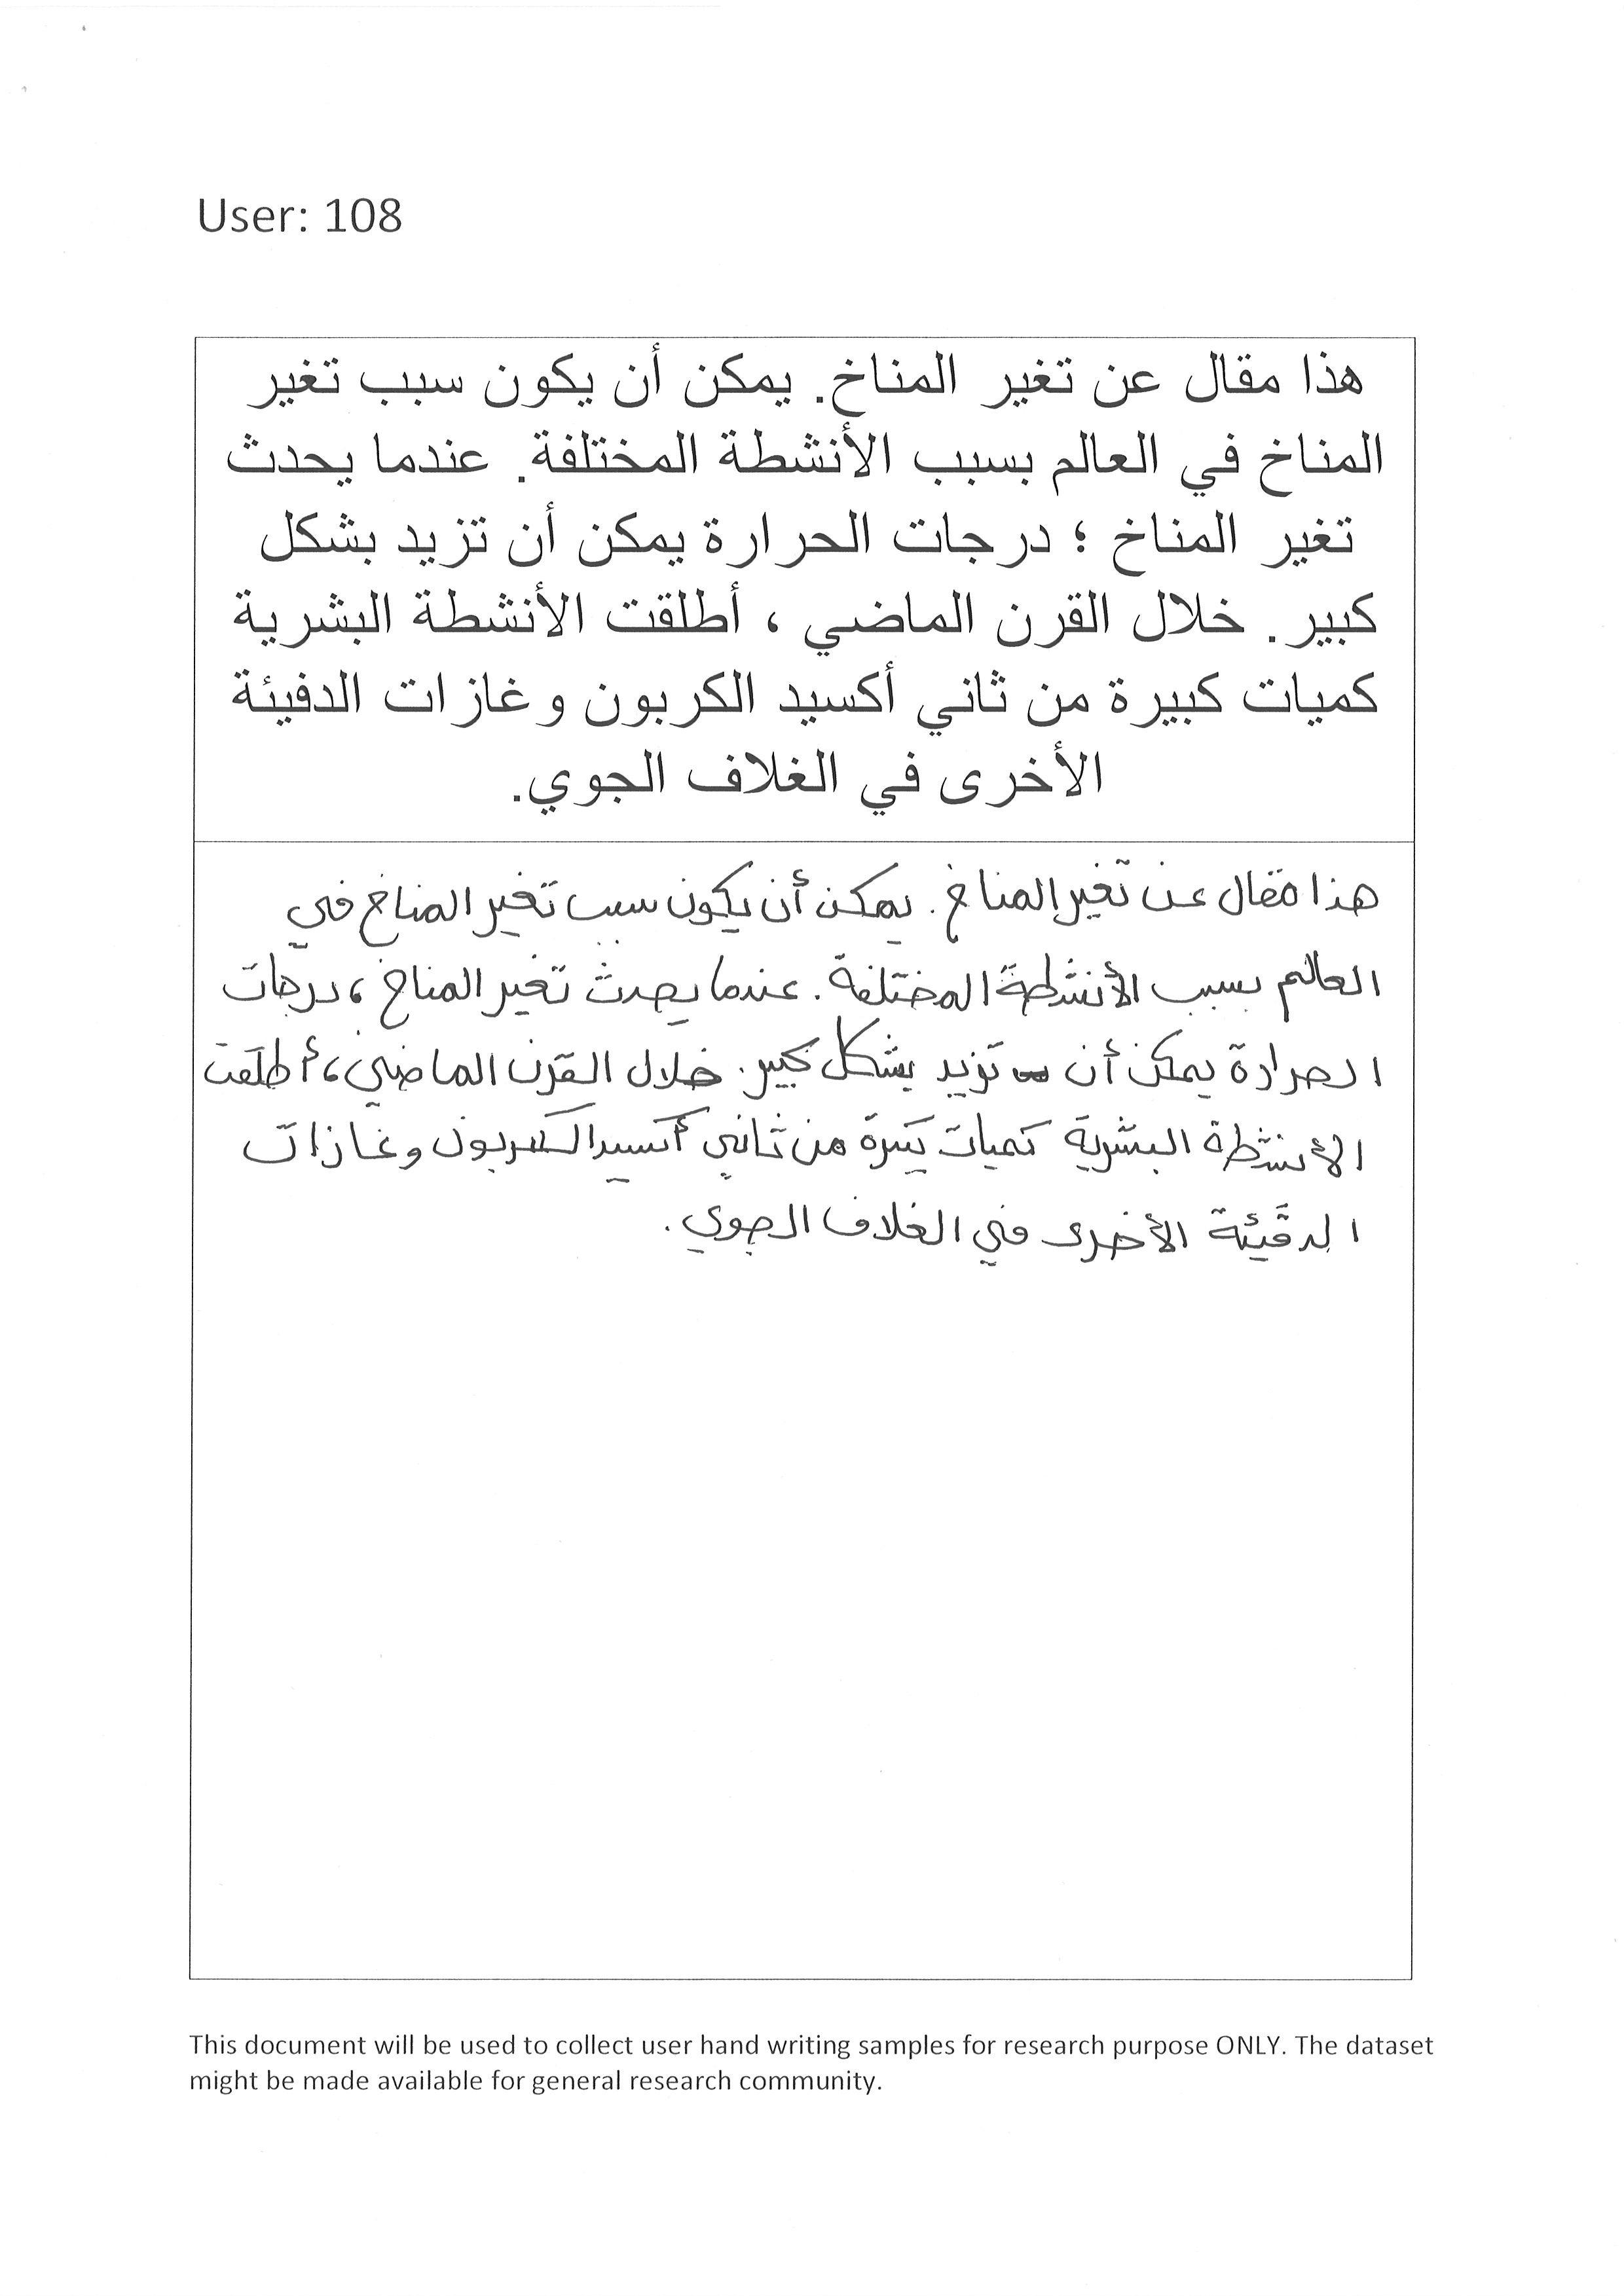 User: 108
هذا مقال عن تغير المناخ. يمكن أن يكون سبب تغير
المناخ في العالم بسبب الأنشطة المختلفة. عندما يحدث
تغير المناخ ؛ درجات الحرارة يمكن أن تزيد بشكل
كبير. خلال القرن الماضي ، أطلقت الأنشطة البشرية
كميات كبيرة من ثاني أكسيد الكربون وغازات الدفيئة
الأخرى في الغلاف الجوي.
هذا مقال عن تغير المناخ. يمكن أن يكون سبب تغير المناخ في
العالم بسبب الأنشطة المختلفة. عندما يحدث تغير المناخ، درجات
الحرارة يمكن أن تزيد بشكل كبير. خلال القرن الماضي، أطلقت
الأنشطة البشرية كميات كبيرة من ثاني أكسيد الكربون وغازات
الدفيئة الأخرى في الغلاف الجوي.
This document will be used to collect user hand writing samples for research purpose ONLY. The dataset
might be made available for general research community.